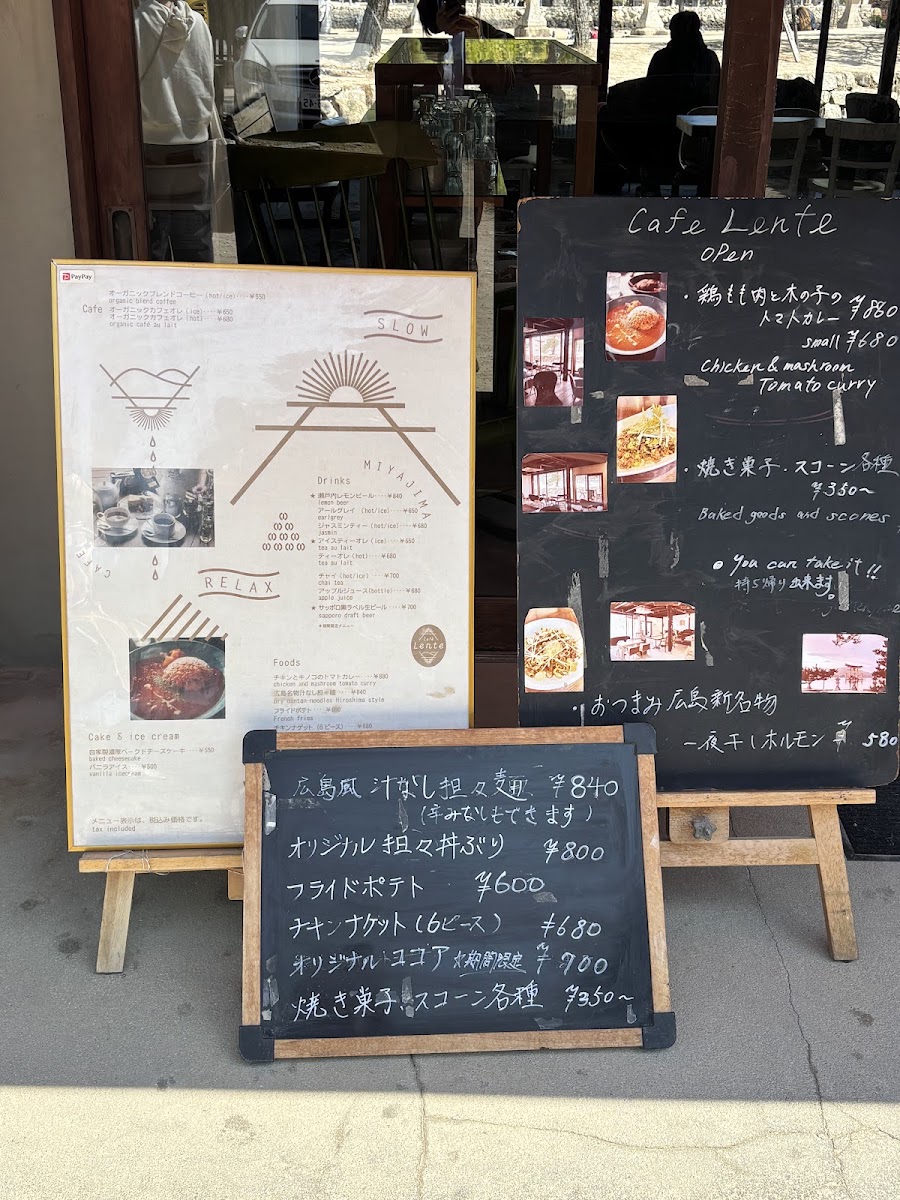 PayPay
オーガニックブレンドコーヒー (hot/ice)····¥550
organic blend coffee
Cafe
オーガニックカフェオレ (ice)····¥650
オーガニックカフェオレ (hot)····¥680
organic café au lait
SLOW
MIYAJIMA
CAFE
RELAX
Drinks
★ 瀬戸内レモンビール····¥840
lemon beer
アールグレイ (hot/ice)····¥650
earlgrey
ジャスミンティー (hot/ice)····¥680
jasmin
★ アイスティーオレ (ice)····¥650
tea au lait
ティーオレ (hot)····¥680
tea au lait
チャイ (hot/ice)····¥700
chai tea
アップルジュース(bottle)····¥680
apple juice
★ サッポロ黒ラベル生ビール····¥700
sapporo draft beer
Lente
Foods
チキンとキノコのトマトカレー
chicken and mashroom tomato curry
広島名物汁なし担々麺 ····¥840
Dry dantan noodles Hiroshima style
フライドポテト
French fries
チキンナゲット (6ピース)····¥680
Cake & ice cream
自家製濃厚ベークドチーズケーキ····¥550
baked cheesecake
バニラアイス····¥500
vanilla icecream
メニュー表示は、税込み価格です。
tax included
Cafe Lente
OPen
・鶏もも肉と木の子の
トマトカレー ¥880
small ¥680
Chicken & mashroom
Tomato curry
・焼き菓子・スコーン各種
¥350〜
Baked goods and scones
● You can take it!!
持ち帰り出来ます。
・おつまみ 広島新名物
一夜干しホルモン ¥580
広島風 汁なし担々麺 ¥840
(辛みなしもできます)
オリジナル担々丼ぶり ¥800
フライドポテト ¥600
チキンナゲット(6ピース) ¥680
オリジナルココア 期間限定 ¥700
焼き菓子.スコーン各種 ¥350〜